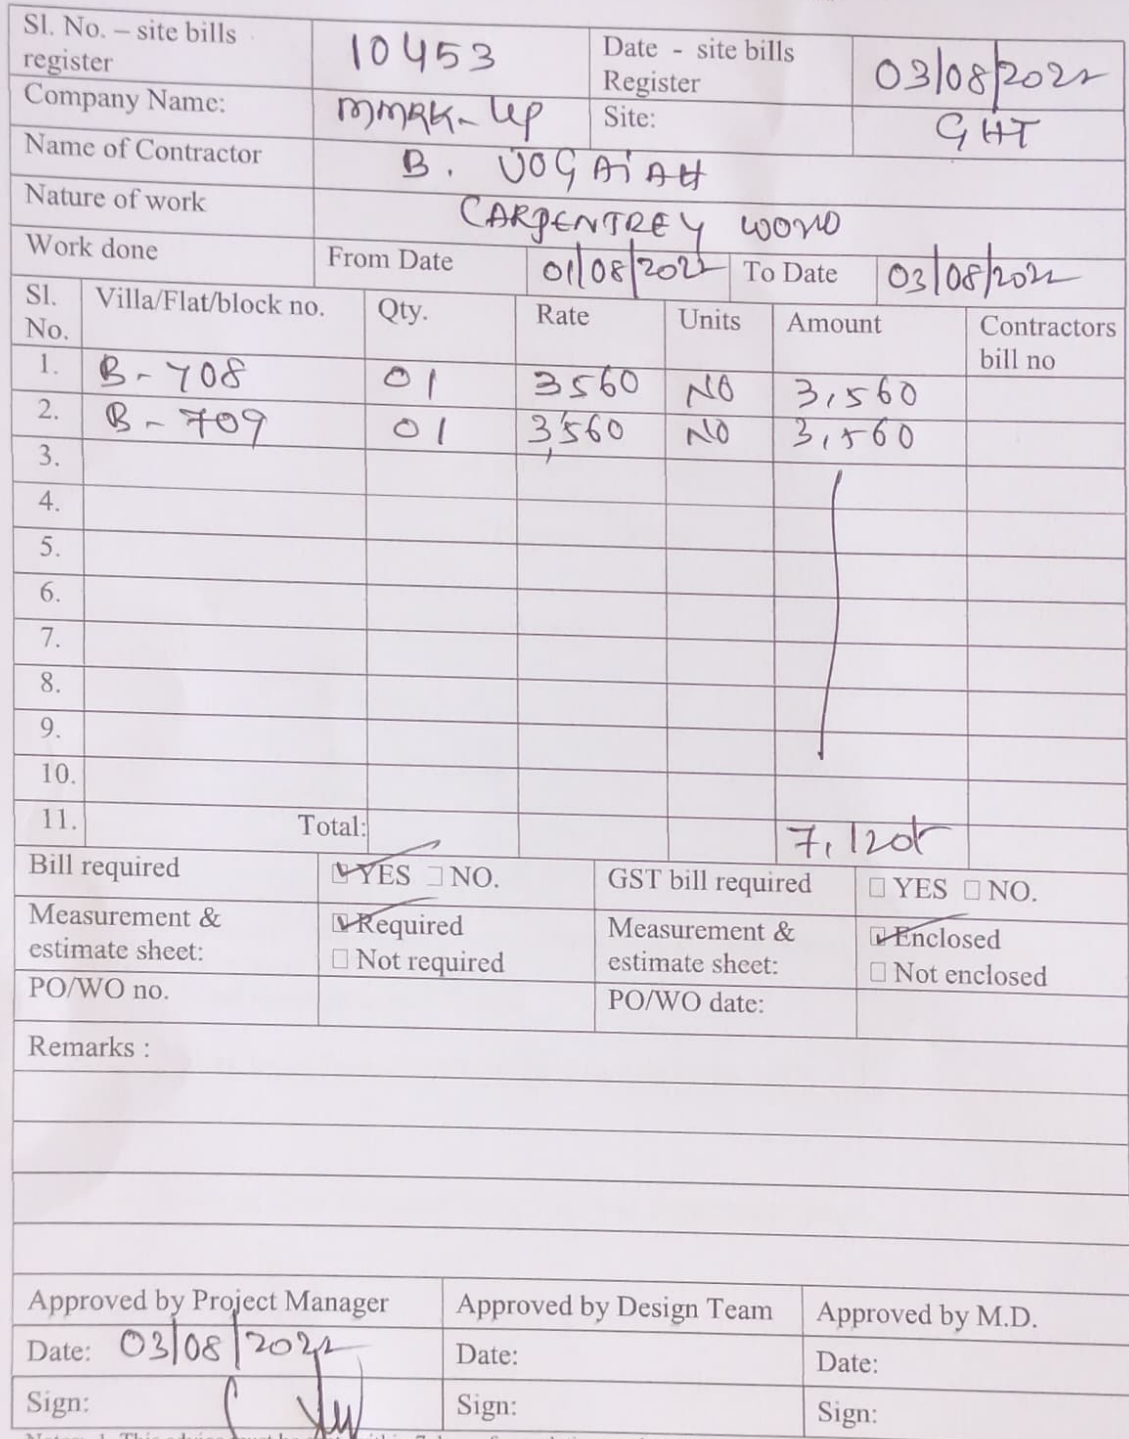 Sl. No. – site bills register 10453 Date - site bills Register 03/08/2022
Company Name: MMRK-UP Site: GHT
Name of Contractor B. JOGAiAH
Nature of work CARPENTREY WORD
Work done From Date 01/08/2022 To Date 03/08/2022
Sl. No. Villa/Flat/block no. Qty. Rate Units Amount Contractors bill no
1. B-708 01 3560 NO 3,560
2. B-709 01 3,560 NO 3,560
3.
4.
5.
6.
7.
8.
9.
10.
11. Total: 7,120
Bill required YES NO. GST bill required YES NO.
Measurement & estimate sheet: Required Not required Measurement & estimate sheet: Enclosed Not enclosed
PO/WO no. PO/WO date:
Remarks :
Approved by Project Manager Approved by Design Team Approved by M.D.
Date: 03/08/2022 Date: Date:
Sign: Sign: Sign: